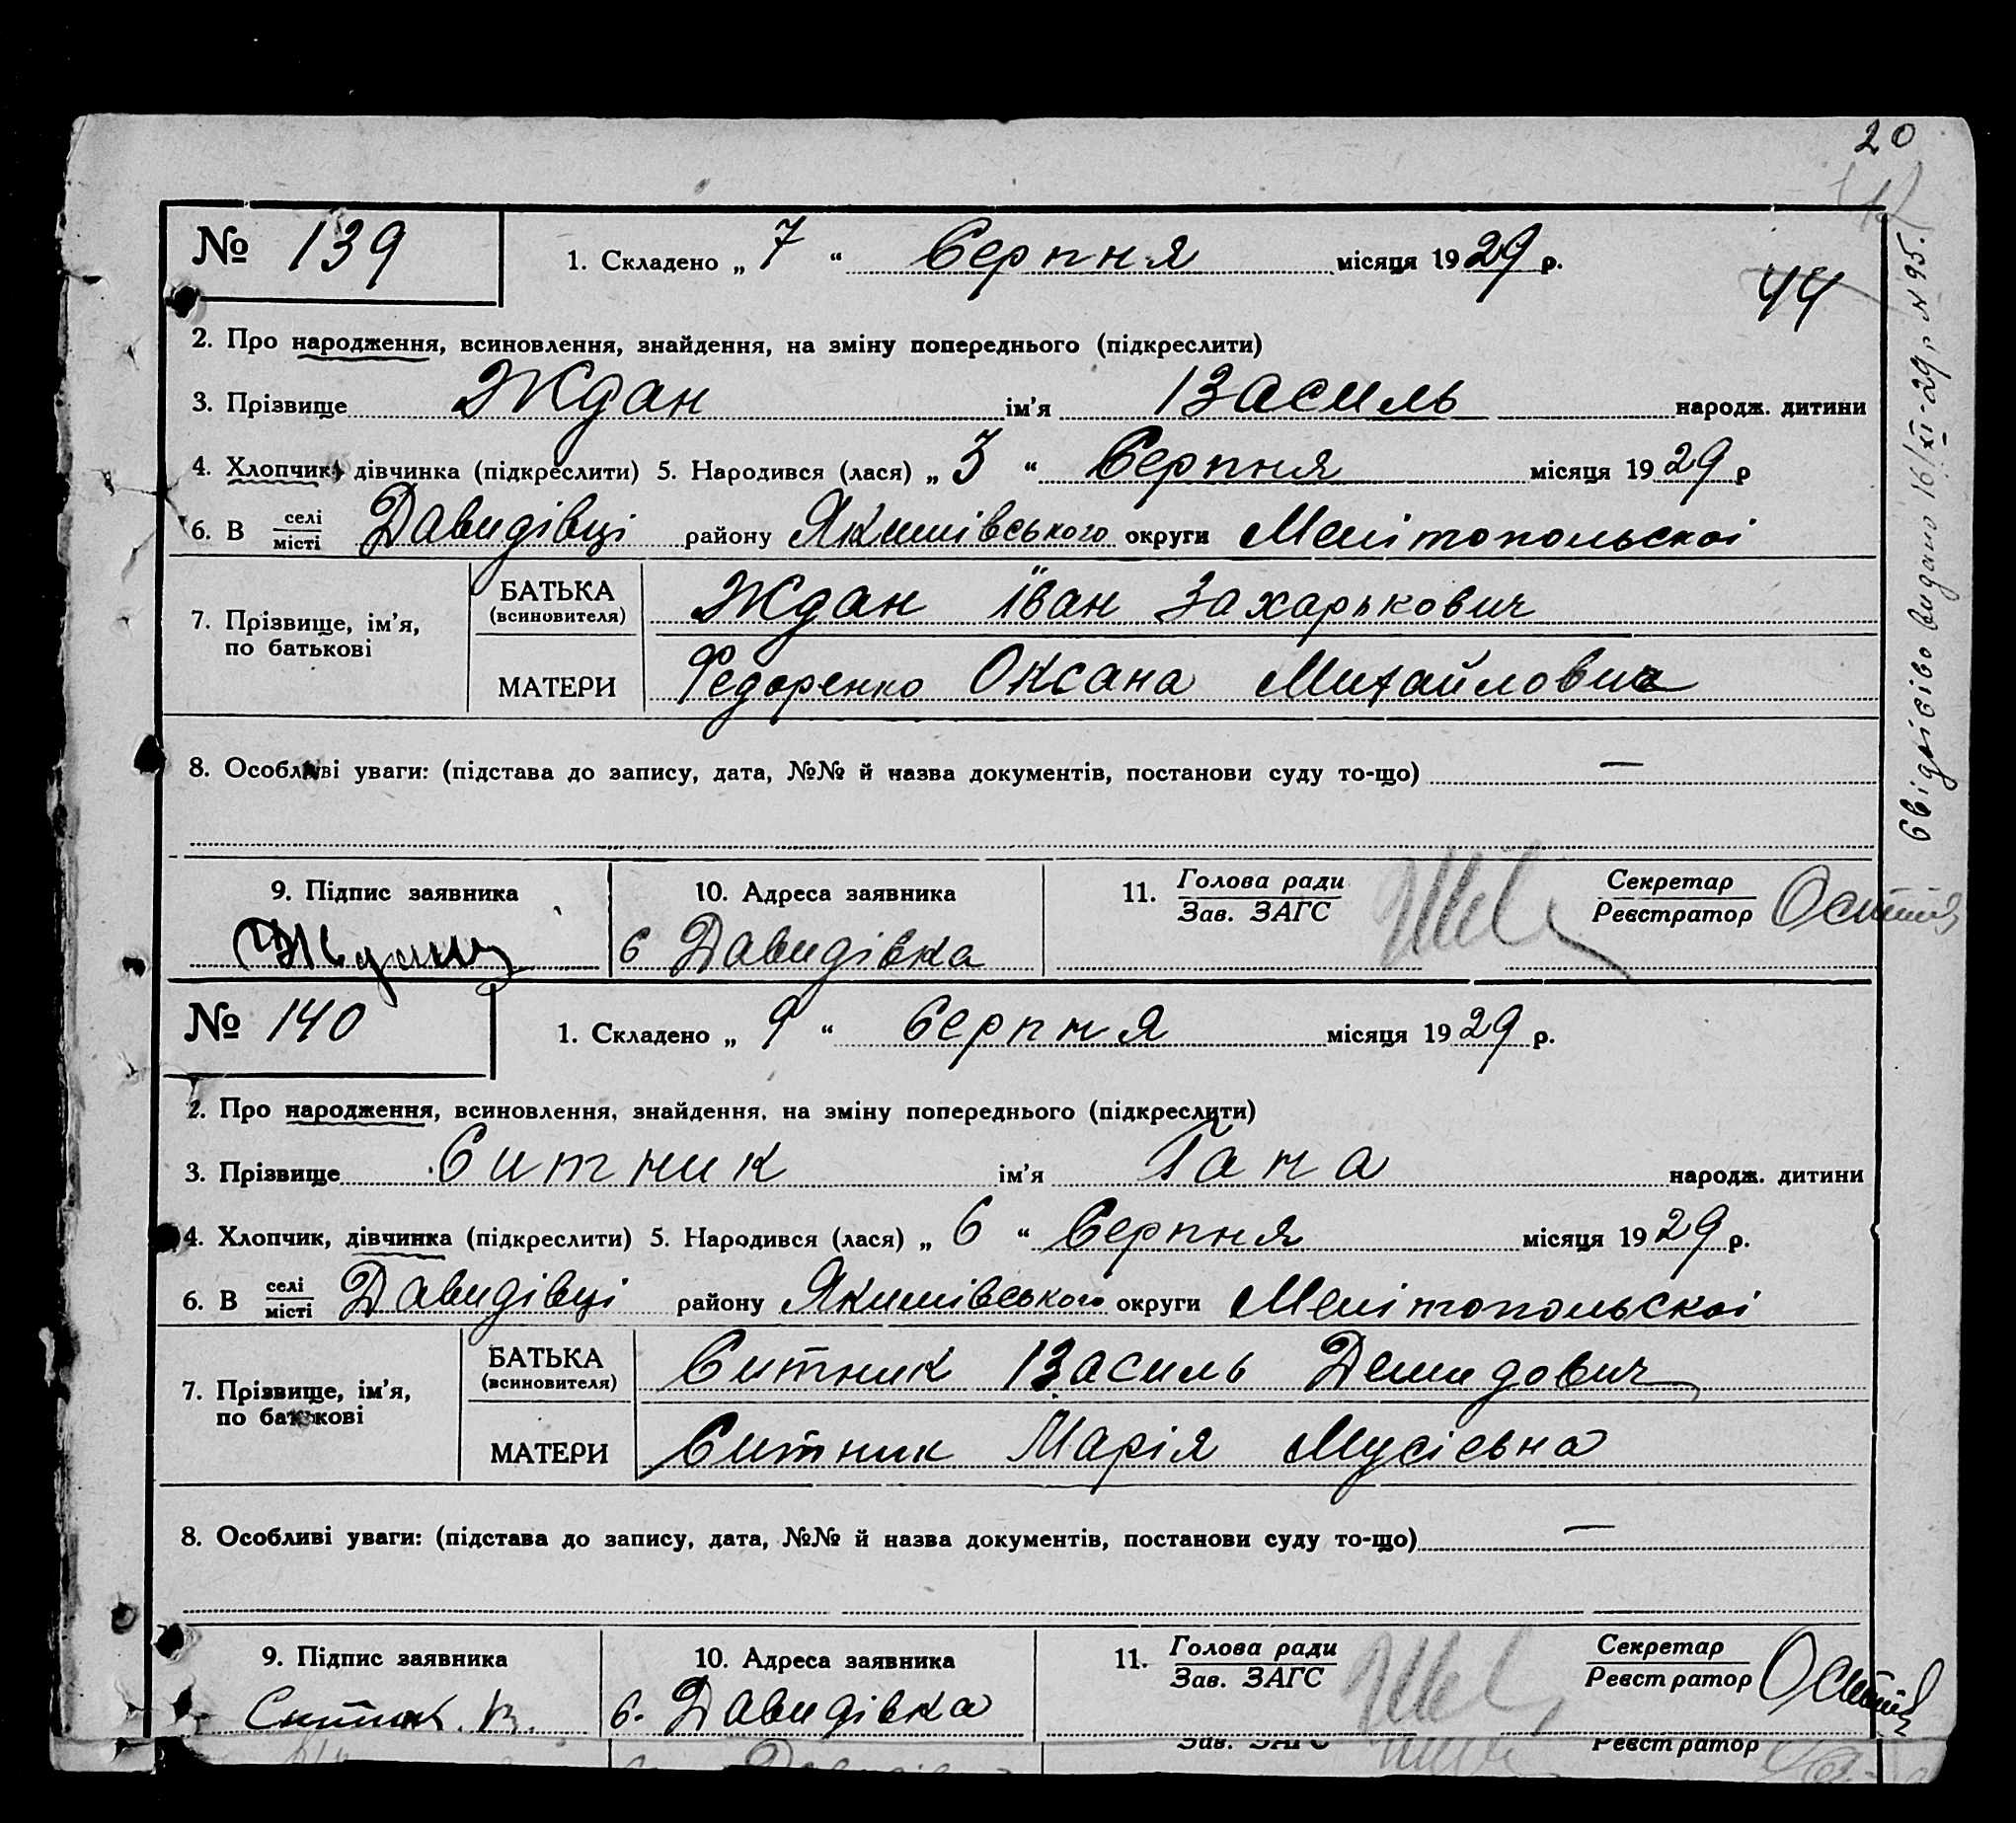 20
44
№ 139
1. Складено „ 7 “ Серпня місяця 1929 р.
2. Про народження, всиновлення, знайдення, на зміну попереднього (підкреслити)
3. Прізвище Ждан ім'я Василь народж. дитини
4. Хлопчик, дівчинка (підкреслити) 5. Народився (лася) „ 3 “ Серпня місяця 1929 р
6. В селі/місті Давидівці району Якимівського округи Мелітопольскоі
7. Прізвище, ім'я, по батькові
БАТЬКА (всиновителя) Ждан Іван Захарькович
МАТЕРИ Федоренко Оксана Михайловна
8. Особливі уваги: (підстава до запису, дата, №№ й назва документів, постанови суду то-що) —
9. Підпис заявника
10. Адреса заявника
11. Голова ради / Зав. ЗАГС
Секретар / Реєстратор
с Давидівка
Свідоцтво видано 16/XI-29 р. № 95.
№ 140
1. Складено „ 9 “ Серпня місяця 1929 р.
2. Про народження, всиновлення, знайдення, на зміну попереднього (підкреслити)
3. Прізвище Ситник ім'я Гана народж. дитини
4. Хлопчик, дівчинка (підкреслити) 5. Народився (лася) „ 6 “ Серпня місяця 1929 р.
6. В селі/місті Давидівці району Якимівського округи Мелітопольскоі
7. Прізвище, ім'я, по батькові
БАТЬКА (всиновителя) Ситник Василь Демидович
МАТЕРИ Ситник Марія Мусієвна
8. Особливі уваги: (підстава до запису, дата, №№ й назва документів, постанови суду то-що) —
9. Підпис заявника
10. Адреса заявника
11. Голова ради / Зав. ЗАГС
Секретар / Реєстратор
Ситник В.
с. Давидівка
Зав. ЗАГС
Реєстратор